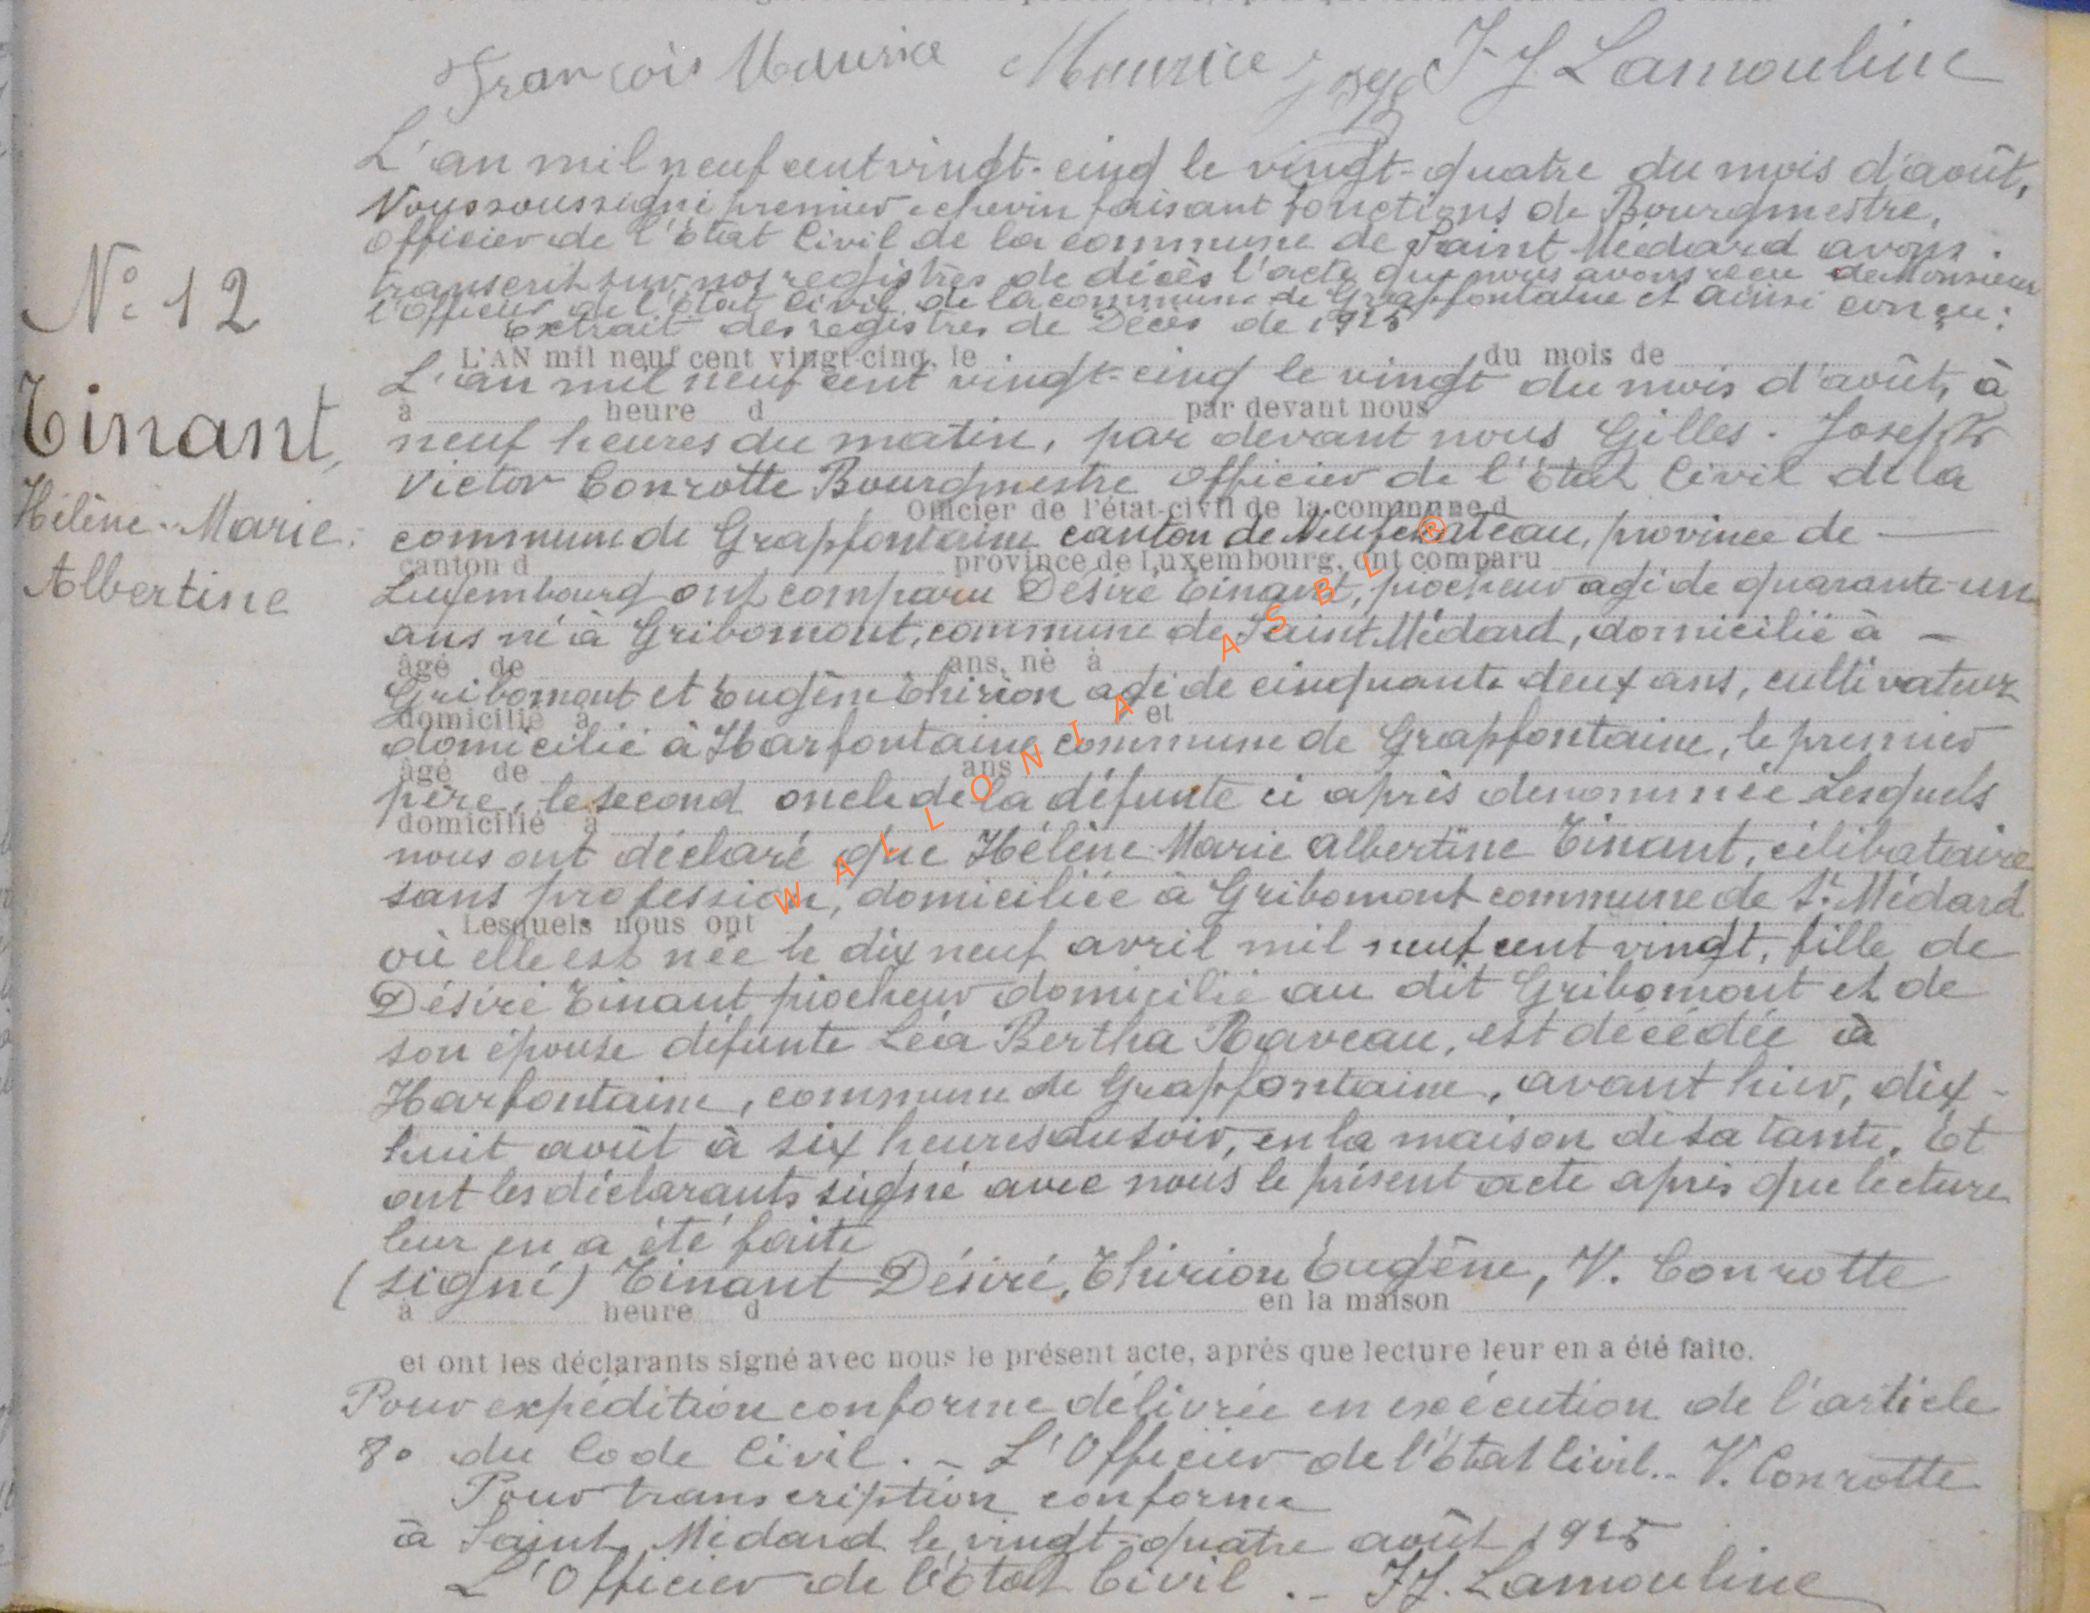 François Maurice Maurice Joseph J J Lamouline
L'an mil neuf cent vingt-cinq le vingt-quatre du mois d'août,
Nous soussigné premier echevin faisant fonctions de Bourgmestre,
Officier de l'Etat Civil de la commune de Saint Médard avons
transcrit sur nos registres de décès l'acte que nous avons reçu de Monsieur
l'Officier de l'Etat Civil de la commune de Grapfontaine et ainsi conçu:
Extrait des registres de Décès de 1925
N° 12
Tinant,
Hélène-Marie
Albertine
L'AN mil neuf cent vingt-cinq, le du mois de
L'an mil neuf cent vingt-cinq le vingt du mois d'août, à
à heure d par devant nous
neuf heures du matin, par devant nous Gilles-Joseph
Victor Conrotte Bourgmestre Officier de l'Etat Civil de la
Officier de l'état-civil de la commune d
commune de Grapfontaine canton de Neufchateau, province de
canton d province de Luxembourg, ont comparu
Luxembourg ont comparu Désiré Tinant, piocheur agé de quarante-un
ans né à Gribomont, commune de Saint Médard, domicilié à
âgé de ans, né à
Gribomont et Eugène Thirion agé de cinquante deux ans, cultivateur
domicilié à et
domicilié à Harfontaine commune de Grapfontaine, le premier
âgé de ans
père, le second oncle de la défunte ci après dénommée Lesquels
domicilié à
nous ont déclaré que Hélène Marie Albertine Tinant, célibataire
sans profession, domiciliée à Gribomont commune de St Médard
Lesquels nous ont
où elle est née le dix neuf avril mil neuf cent vingt, fille de
Désiré Tinant piocheur domicilié au dit Gribomont et de
son épouse défunte Léa Bertha Raveau, est décédée à
Harfontaine, commune de Grapfontaine, avant hier, dix-
huit août à six heures du soir, en la maison de sa tante. Et
ont les déclarants signé avec nous le présent acte après que lecture
leur en a été faite
(signé) Tinant Désiré, Thirion Eugène, V. Conrotte
à heure d en la maison
et ont les déclarants signé avec nous le présent acte, après que lecture leur en a été faite.
Pour expédition conforme délivrée en exécution de l'article
80 du Code Civil. - L'Officier de l'Etat Civil.- V. Conrotte
Pour transcription conforme
à Saint Médard le vingt-quatre août 1925
L'Officier de l'Etat Civil. - J.J. Lamouline
WALLONIA ASBL ®